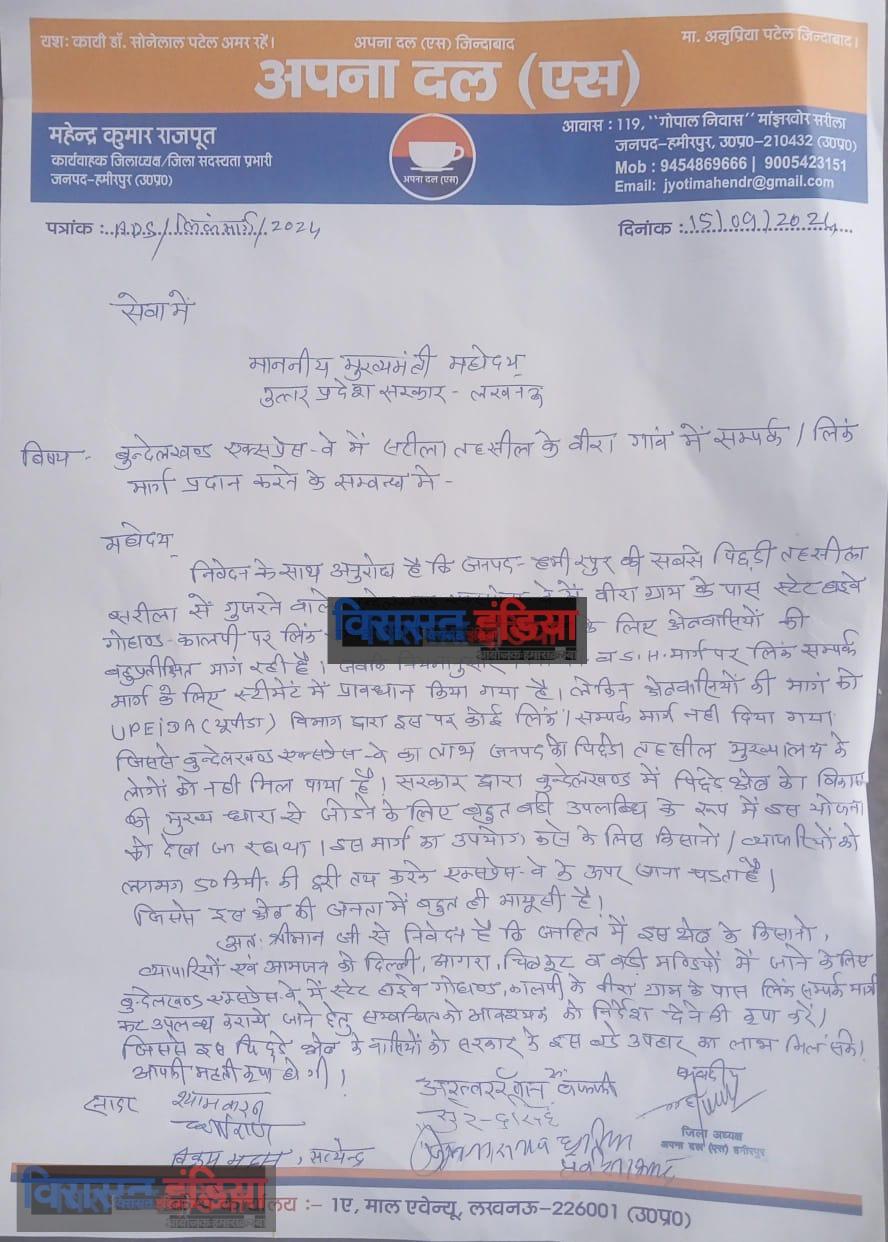 यश: कायी डॉ. सोनेलाल पटेल अमर रहें। अपना दल (एस) जिन्दाबाद मा. अनुप्रिया पटेल जिन्दाबाद।
अपना दल (एस)
महेन्द्र कुमार राजपूत
कार्यवाहक जिलाध्यक्ष/जिला सदस्यता प्रभारी
जनपद-हमीरपुर (उ०प्र०)
अपना दल (एस)
आवास : 119, "गोपाल निवास" मांझखोर सरीला
जनपद-हमीरपुर, उ०प्र०-210432 (उ०प्र०)
Mob : 9454869666 | 9005423151
Email: jyotimahendr@gmail.com
पत्रांक : A.D.S/लिंकमार्ग/2024 दिनांक : 15/09/2024
सेवा में
माननीय मुख्यमंत्री महोदय
उत्तर प्रदेश सरकार - लखनऊ
विषय - बुन्देलखण्ड एक्सप्रेस-वे में सरीला तहसील के वीरा गांव में सम्पर्क / लिंक
मार्ग प्रदान करने के सम्बन्ध में -
महोदय
निवेदन के साथ अनुरोध है कि जनपद-हमीरपुर की सबसे पिछडी तहसील
सरीला से गुजरने वाले में वीरा ग्राम के पास स्टेट हाइवे
गोहाण्ड-कालपी पर लिंक के लिए क्षेत्रवासियों की
बहुप्रतीक्षित मांग रही है। जबकि व S.H. मार्ग पर लिंक सम्पर्क
मार्ग के लिए स्टीमेंट में प्रावधान किया गया है। लेकिन क्षेत्रवासियों की मांग को
UPEIDA (यूपीडा) विभाग द्वारा इस पर कोई लिंक/सम्पर्क मार्ग नही दिया गया
जिससे बुन्देलखण्ड एक्सप्रेस-वे का लाभ जनपद की पिछडी तहसील मुख्यालय के
लोगों को नही मिल पाया है। सरकार द्वारा बुन्देलखण्ड में पिछडे क्षेत्र को विकास
की मुख्य धारा से जोडने के लिए बहुत बडी उपलब्धि के रूप में इस योजना
को देखा जा रहा था। इस मार्ग का उपयोग करने के लिए किसानो / व्यापारियों को
लगभग 50 किमी. की दूरी तय करके एक्सप्रेस-वे के ऊपर जाना पडता है।
जिससे इस क्षेत्र की जनता में बहुत ही मायूसी है।
अत: श्रीमान जी से निवेदन है कि जनहित में इस क्षेत्र के किसानो,
व्यापारियों एवं आमजन को दिल्ली, आगरा, चित्रकूट व बडी मण्डियों में जाने के लिए
बुन्देलखण्ड एक्सप्रेस-वे में स्टेट हाइवे गोहाण्ड, कालपी के वीरा ग्राम के पास लिंक सम्पर्क मार्ग
कट उपलब्ध कराये जाने हेतु सम्बन्धित को आवश्यक को निर्देश देने की कृपा करें।
जिससे इस पिछडे क्षेत्र के वासियों को सरकार के इस बडे उपहार का लाभ मिल सके।
आपकी महती कृपा होगी।
सादर श्यामकरन
सत्येन्द्र
जिला अध्यक्ष
अपना दल (एस) हमीरपुर
कार्यालय :- 1ए, माल एवेन्यू, लखनऊ-226001 (उ०प्र०)
विरासत इंडिया
विरासत इंडिया